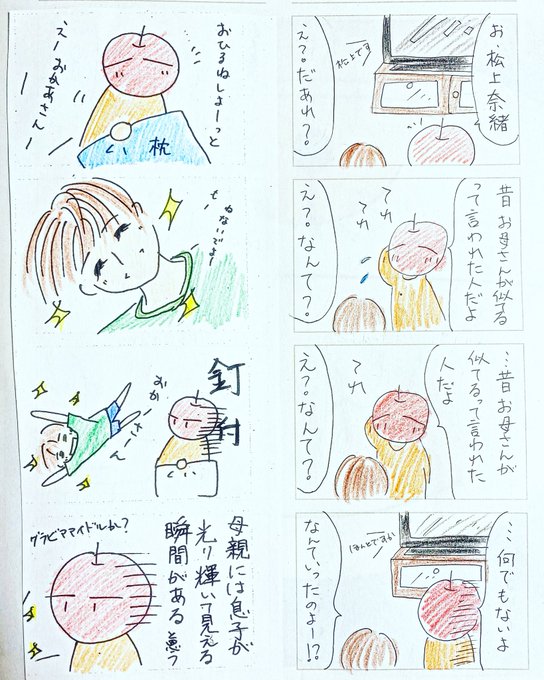 お
松上奈緒
松上です
え?。だあれ?。
昔
お母さんが似てる
って言われた人だよ
てれ
てれ
え?。なんて?。
…昔お母さんが
似てるって言われた
人だよ
てれ
え?。なんて?。
…何でもないよ
ほんとですか
なんていったのよー!?
おひるねしよーっと
えーおかあさんー
枕
釘付
おかーさーん
母親には息子が
光り輝いて見える
瞬間がある
グラビママイドルかし?